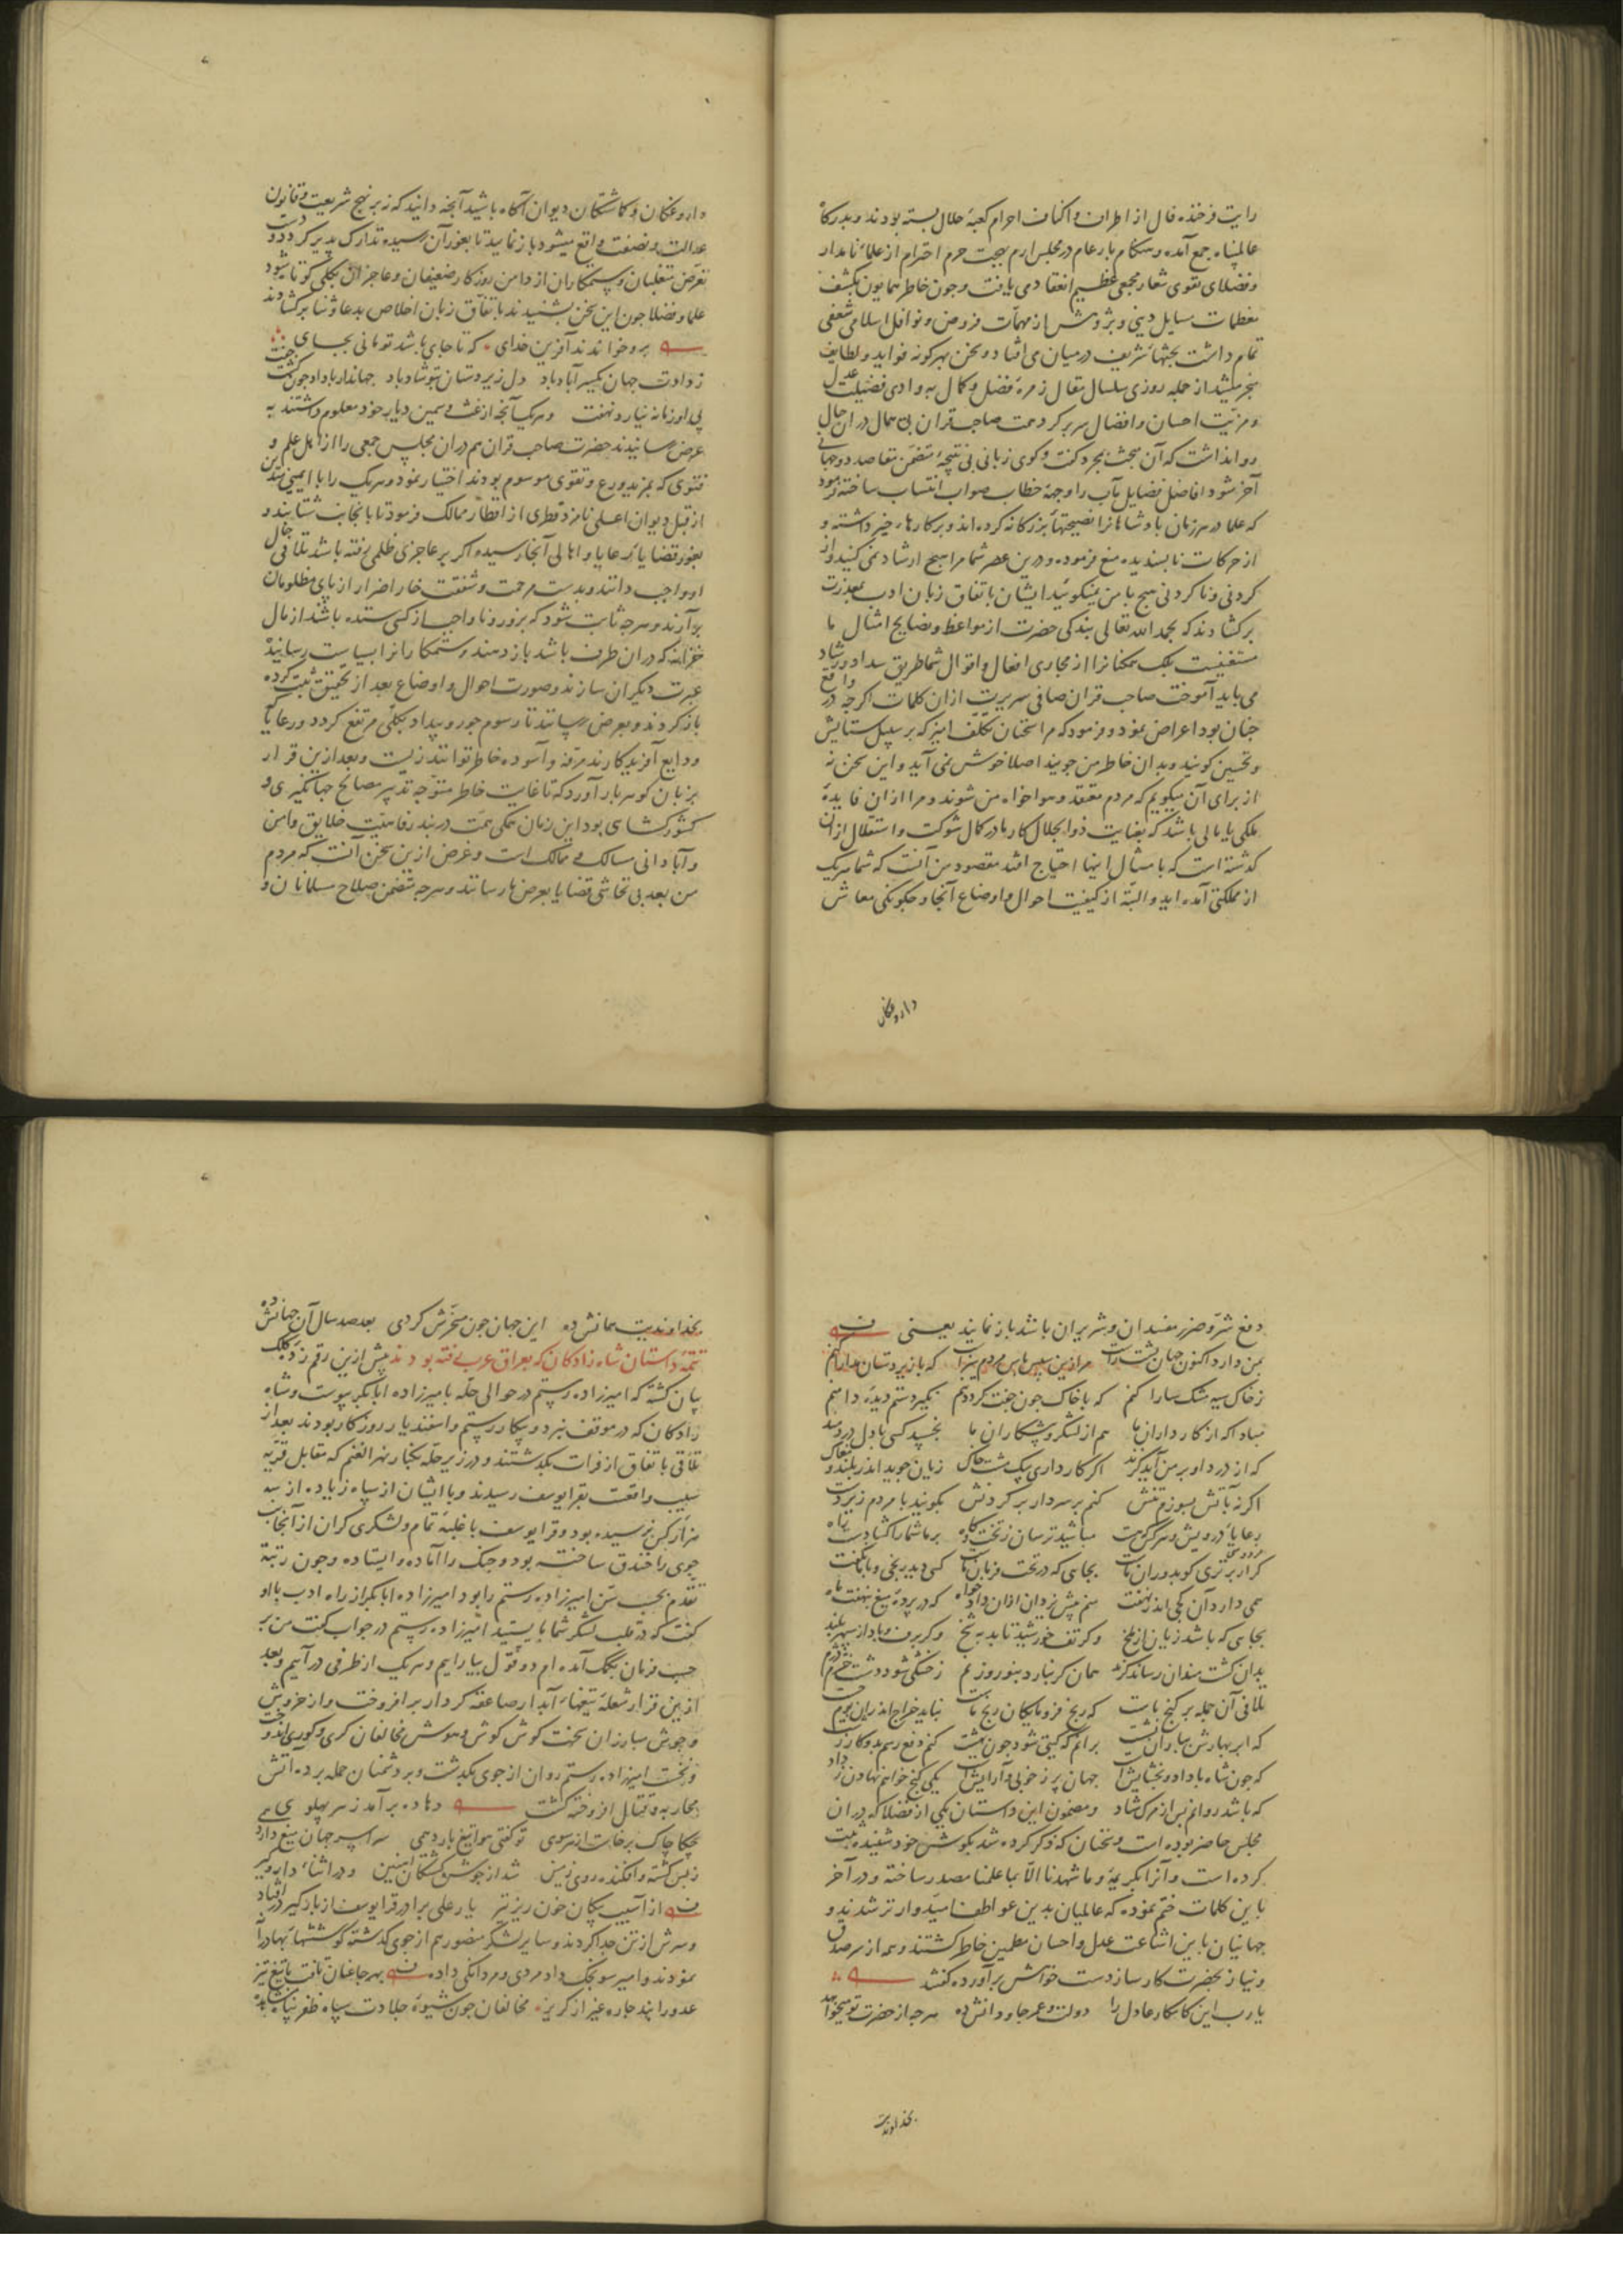 رایت فرخنده فال از اطراف و اکناف احرام کعبهٔ جلال بسته بودند و بدرکاه
عالمپناه جمع آمده و هنکام بار عام در مجلس ارم بهجت حرم احترام از علماء نامدار
و فضلای تقوی شعار مجمعی عظیم انعقاد می یافت و چون خاطر همایون بکشف
معظمات مسایل دینی و پژوهش از مهمات فروض و نوافل اسلامی شعفی
تمام داشت بحثهاء شریف در میان می افتاد و سخن بهر کونه فواید و لطایف
منجر میشد از جمله روزی سلسال مقال زمرهٔ فضل و کمال به وادی فضیلت عدل
و مزیت احسان و افضال سر بر کرد همت صاحب قران بی همال در ان حال
روا نداشت که آن مبحث بمجرد کفت و کوی زبانی بی نتیجهٔ متضمن مقاصد دو جهانی
آخر شود افاضل فضایل مآب را وجههٔ خطاب صواب انتساب ساخته فرمود
که علما در هر زمان پادشاهانرا نصیحتهاء بزرکانه کرده اند و بر کارهاء خیر داشته و
از حرکات ناپسندیده منع فرموده و درین عصر شما مرا هیچ ارشاد نمی کنید و از
کردنی و ناکردنی هیچ با من نمیکوئید ایشان باتفاق زبان ادب بمعذرت
برکشادند که بحمد الله تعالی بندکی حضرت از مواعظ و نصایح امثال ما
مستغنیست بلک همکنانرا از مجاری افعال و اقوال شما طریق سداد و رشاد
می باید آموخت صاحب قران صافی سریرت ازان کلمات اکرچه در واقع
چنان بود اعراض نمود و فرمود که مرا سخنان تکلف امیز که بر سبیل ستایش
و تحسین کویند و بدان خاطر من جویند اصلا خوش نمی آید و این سخن نه
از برای آن میکویم که مردم معتقد و هواخواه من شوند و مرا ازان فایدهٔ
ملکی یا مالی باشد که بعنایت ذو الجلال کار ما در کمال شوکت و استقلال ازان
کذشته است که بامثال اینها احتیاج افتد مقصود من آنست که شما هریک
از مملکتی آمده اید و البته از کیفیت احوال و اوضاع آنجا و چکونکی معاش
داروغکان
داروغکان و کماشتکان دیوان آکاه باشید آنچه دانید که نه بر نهج شریعت و قانون
عدالت و نصفت واقع میشود باز نمایید تا بغور آن رسیده تدارک پذیر کردد و دست
تعرض متغلبان و ستمکاران از دامن روزکار ضعیفان و عاجزان بکلی کوتاه شود
علما و فضلا چون این سخن بشنیدند باتفاق زبان اخلاص بدعا و ثنا برکشادند
برو خواندند آفرین خدای که تا جای باشد تو مانی بجای
ز دادت جهان یکسر آباد باد دل زیردستان بتو شاد باد جهاندار با داد چون کشت جفت
پی او زمانه نیارد نهفت و هریک آنچه از غث و سمین دیار خود معلوم داشتند به
عرض رسانیدند حضرت صاحب قران هم دران مجلس جمعی را از اهل علم و
فتوی که بمزید ورع و تقوی موسوم بودند اختیار نمود و هریک را با امینی متدین
از قبل دیوان اعلی نامزد قطری از اقطار ممالک فرمود تا بآنجانب شتابند و
بغور قضایاء رعایا و اهالی آنجا رسیده اکر بر عاجزی ظلمی رفته باشد تلافی حال
او واجب دانند و بدست مرحمت و شفقت خار اضرار از پای مظلومان
برآرند و هرچه ثابت شود که بزور و ناواجب از کسی ستده باشند از مال
خزانه که دران طرف باشد باز دهند و ستمکارانرا بسیاست رسانیده
عبرت دیکران سازند و صورت احوال و اوضاع بعد از تحقیق ثبت کرده
باز کردند و بعرض رسانند تا رسوم جور و بیداد بکلی مرتفع کردد و رعایا که
ودایع آفریدکارند مرفه و آسوده خاطر توانند زیست و بعد ازین قرار
بر زبان کوهربار آورد که تا غایت خاطر متوجه تدبیر مصالح جهانکیری و
کشورکشای بود این زمان همکی همت در بند رفاهیت خلایق و امن
و آبادانی مسالک و ممالک است و غرض ازین سخن آنست که مردم
من بعد بی تحاشی قضایا بعرض ما رسانند و هرچه متضمن صلاح مسلمانان و
دفع شر و ضرر مفسدان و شریران باشد باز نمایند یعنی
بمن دارد اکنون جهان پشت راست
ز خاک سیه مشک سارا کنم که با خاک چون جفت کردد تنم نکیرد ستم دیدهٔ دامنم
مباد آکه از کار داران ما هم از لشکر و پیشکاران ما نخسپد کسی با دل دردمند
که از درد او بر من آید کزند اکر کارداری بیک مشت خاک زیان جوید اندر بلند و مغاک
اکر نه بآتش بسوزم تنش کنم بر سر دار بر کردنش بکویند با مردم زیردست
بجای که باشد زیان از ملخ وکر تف خورشید تابد به شخ وکر برف و باد از سپهر بلند
بدان کشت مندان رساند کزند همان کر نبارد بنوروز نم ز خشکی شود دشت خرم دژم
که ابر بهارش بباران نشست برانم که کیتی شود چون بهشت
که چون شاه با داد و بخشایش است جهان پر ز خوبی و آرایش است یکی کنج خواهم نهادن ز داد
که باشد روانم پس از مرک شاد و مضمون این داستان یکی از فضلا که دران
مجلس حاضر بوده است و سخنان که ذکر کرده شد بکوش خود شنیده ثبت
کرده است و آنرا بکریمهٔ و ما شهدنا الا بما علمنا مصدر ساخته و در آخر
باین کلمات ختم نموده که عالمیان بدین عواطف امیدوارتر شدند و
جهانیان باین اشاعت عدل و احسان مطمین خاطر کشتند و همه از سر صدق
و نیاز بحضرت کارساز دست خواهش برآورده کفتند
یا رب این کامکار عادل را دولت و عمر جاودانش ده هرچه از حضرت تو میخواهد
بخداوندیت
بخداوندیت همانش ده این جهان چون مسخرش کردی بعد صد سال آن جهانش ده
تتمهٔ داستان شاه زادکان که بعراق عرب رفته بودند پیش ازین رقم زدهٔ کلک
بیان کشته که امیرزاده رستم در حوالی حله بامیرزاده ابابکر پیوست و شاه
زادکان که در موقف نبرد و پیکار رستم و اسفندیار روزکار بودند بعد از
تلاقی باتفاق از فرات بکذشتند و در زیر حله بکنار نهر الغنم که مقابل قریه
سیب واقعست بقرا یوسف رسیدند و با ایشان از سپاه زیاده از سه
هزار کس نرسیده بود و قرا یوسف با غلبهٔ تمام و لشکری کران از آنجانب
جوی را خندق ساخته بود و جنک را آماده و ایستاده و چون رتبهٔ
تقدم بحسب سن امیرزاده رستم را بود امیرزاده ابابکر از راه ادب با او
کفت که در قلب لشکر شما بایستید امیرزاده رستم در جواب کفت من بر
حسب فرمان بکمک آمده ام دو قول بیارایم و هریک از طرفی درآییم و بعد
ازین قرار شعلهٔ تیغهاء آبدار صاعقه کردار برافروخت و از خروش
و جوش مبارزان سخت کوش کوش و هوش مخالفان کری و کوری اندوخت
و نخست امیرزاده رستم روان از جوی بکذشت و بر دشمنان حمله برده آتش
محاربه و قتال افروخته کشت دهاده برآمد ز هر پهلوی
چکاچاک برخاست از هر سوی تو کفتی هوا تیغ بارد همی سراسر جهان میغ دارد
ز بس کشته و افکنده روی زمین شد از جوش کشتکان و در اثناء دار و کیر
از آسیب پیکان خون ریز تیر یار علی برادر قرا یوسف از بادکیر در افتاد
و سرش از تن جدا کردند و سایر لشکر منصور هم از جوی کذشته کوششهاء بهادرانه
نمودند و امیر سونجک داد مردی و مردانکی داده بهر جا عنان تافت با تیغ تیز
عدو را نبد چاره غیر از کریز مخالفان چون شیوهٔ جلادت سپاه ظفر پناه